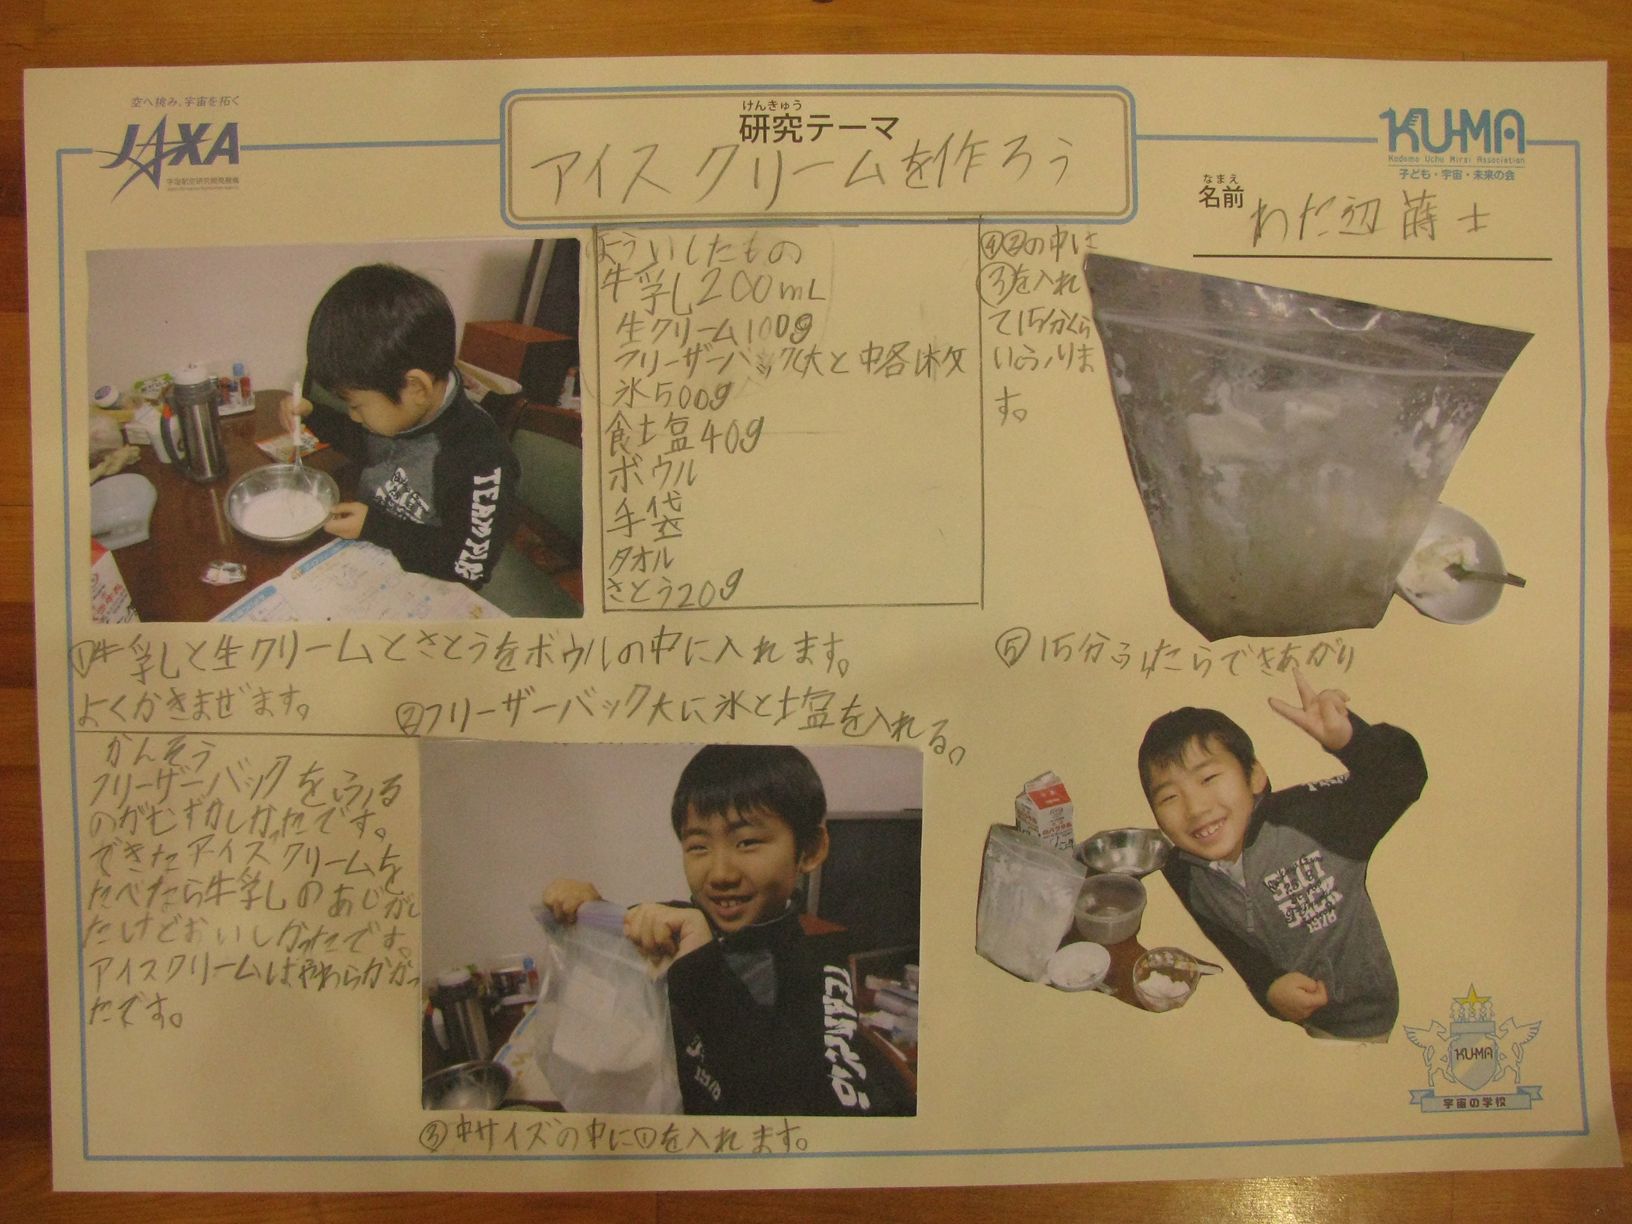 空へ挑み、宇宙を拓く
JAXA
宇宙航空研究開発機構
けんきゅう
研究テーマ
アイスクリームを作ろう
KU-MA
Kodomo Uchu Mirai Association
子ども・宇宙・未来の会
なまえ
名前
わた辺 蒔士
よういしたもの
牛乳し200mL
生クリーム100g
フリーザーバック大と中各1枚
氷500g
食塩40g
ボウル
手袋
タオル
さとう20g
①牛乳しと生クリームとさとうをボウルの中に入れます。
よくかきまぜます。
②フリーザーバック大に氷と塩を入れる。
③中サイズの中に①を入れます。
④②の中に
③を入れ
て15分くら
いふります。
⑤15分ふったらできあがり
かんそう
フリーザーバックをふる
のがむずかしかったです。
できたアイスクリームを
たべたら牛乳しのあじがし
たけどおいしかったです。
アイスクリームはやわらかかっ
たです。
TEAM PLAY
KU-MA
宇宙の学校